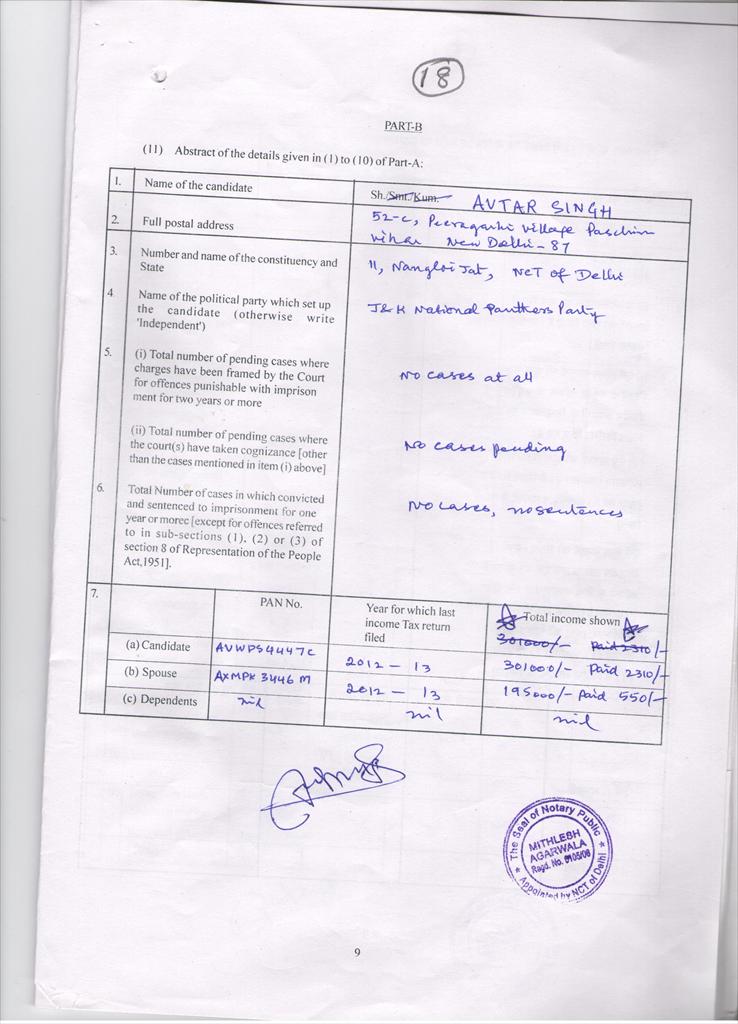 18
PART-B
(11) Abstract of the details given in (1) to (10) of Part-A:
1. Name of the candidate Sh./Smt./Kum. AVTAR SINGH
2. Full postal address 52-C, Peeragarhi Village Paschim
Vihar New Delhi-87
3. Number and name of the constituency and
State
11, Nangloi Jat, NCT of Delhi
4 Name of the political party which set up
the candidate (otherwise write
'Independent')
J&K National Panthers Party
5. (i) Total number of pending cases where
charges have been framed by the Court
for offences punishable with imprison
ment for two years or more
No cases at all
(ii) Total number of pending cases where
the court(s) have taken cognizance [other
than the cases mentioned in item (i) above]
No cases pending
6. Total Number of cases in which convicted
and sentenced to imprisonment for one
year or morec [except for offences referred
to in sub-sections (1), (2) or (3) of
section 8 of Representation of the People
Act,1951].
No cases, no sentences
7. PAN No. Year for which last
income Tax return
filed
Total income shown
301000/- Paid 2310/-
(a) Candidate AVWPS4447C 2012-13 301000/- Paid 2310/-
(b) Spouse AXMPK3446M 2012-13 195000/- Paid 550/-
(c) Dependents nil nil nil
The Seal of Notary Public
MITHLESH
AGARWALA
Regd. No. 5105/08
Appointed by NCT of Delhi
9